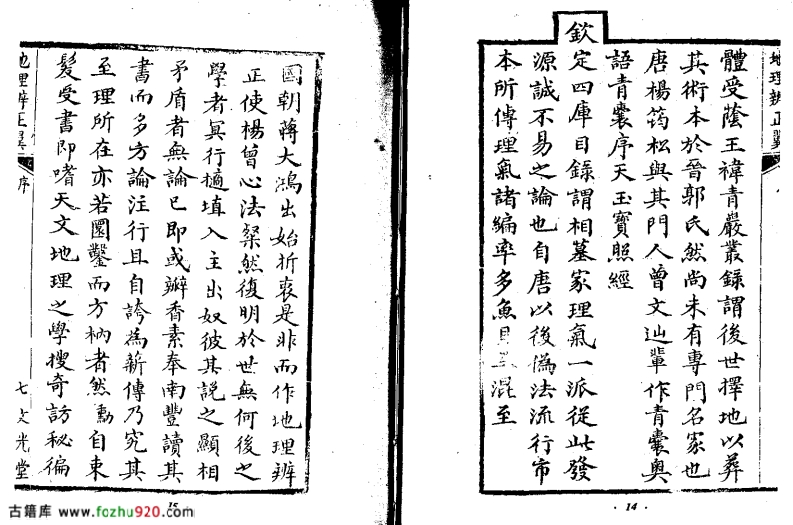 地理辨正翼
體受蔭王褘青巖叢錄謂後世擇地以葬
其術本於晉郭氏然尚未有專門名家也
唐楊筠松與其門人曾文辿輩作青囊奧
語青囊序天玉寶照經
欽定四庫目錄謂相墓家理氣一派從此發
源誠不易之論也自唐以後僞法流行市
本所傳理氣諸編率多魚目混至
·14·
國朝蔣大鴻出始折衷是非而作地理辨
正使楊曾心法粲然復明於世無何後之
學者冥行擿埴入主出奴彼其說之顯相
矛盾者無論已即或瓣香素奉南豐讀其
書而多方論注行且自誇為薪傳乃究其
至理所在亦若圜鑿而方枘者然勳自束
髮受書即嗜天文地理之學搜奇訪秘徧
地理辨正翼 序 七 文光堂
15
古籍库 www.fozhu920.com